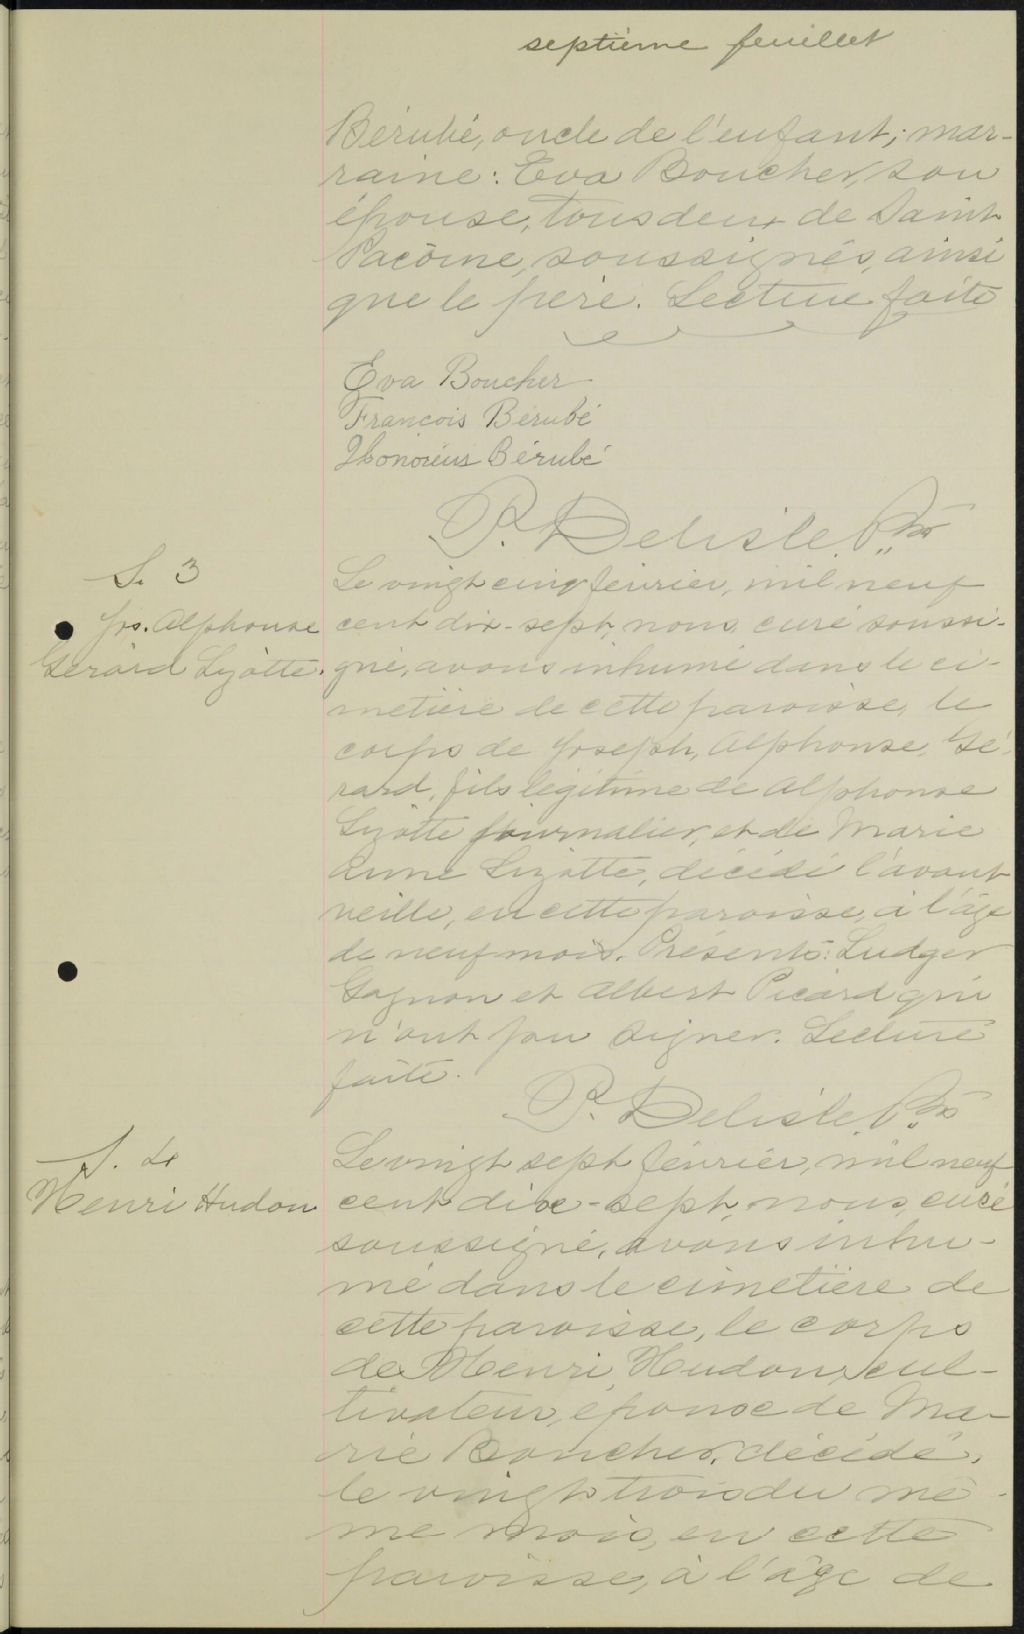 septième feuillet
Bérubé, oncle de l'enfant; mar-
raine: Eva Boucher, son
épouse, tous deux de Saint
Pacôme, soussignés, ainsi
que le père. Lecture faite
Eva Boucher
François Bérubé
Honorius Bérubé
P. Delisle, Ptre
S. 3
Jos. Alphonse
Gérard Lizotte.
Le vingt cinq février, mil neuf
cent dix-sept, nous, curé soussi-
gné, avons inhumé dans le ci-
metière de cette paroisse, le
corps de Joseph, Alphonse, Gé-
rard, fils légitime de Alphonse
Lizotte journalier, et de Marie
Anne Lizotte, décédé l'avant
veille, en cette paroisse, à l'âge
de neuf mois. Présents: Ludger
Gagnon et Albert Picard qui
n'ont pu signer. Lecture
faite.
P. Delisle, Ptre
S. 4
Henri Hudon
Le vingt sept février, mil neuf
cent dix-sept, nous, curé
soussigné, avons inhu-
mé dans le cimetière de
cette paroisse, le corps
de Henri Hudon, cul-
tivateur, épouse de Ma-
rie Boucher, décédé,
le vingt trois du mê-
me mois, en cette
paroisse, à l'âge de